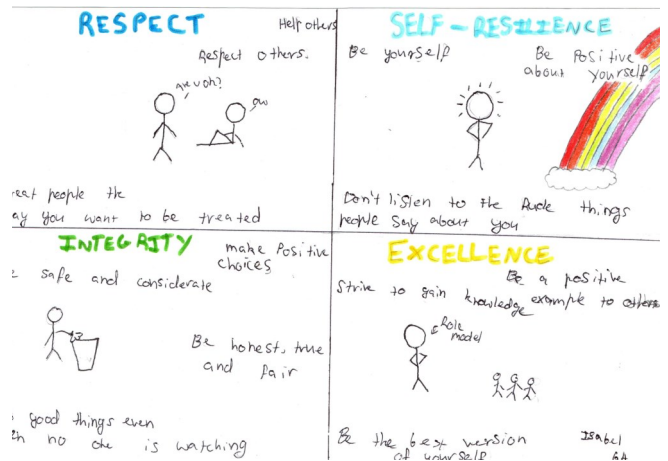 RESPECT
Help others
Respect others.
are u oh?
ow
reat people the
ay you want to be treated
SELF-RESILIENCE
Be yourself
Be Positive
about yourself
Don't listen to the Rude things
people say about you
INTEGRITY
make Positive
choices
e safe and considerate
Be honest, true
and fair
good things even
en no one is watching
EXCELLENCE
Be a positive
example to others
Strive to gain
knowledge
Role
model
Be the best version
of yourself
Isabel
6A